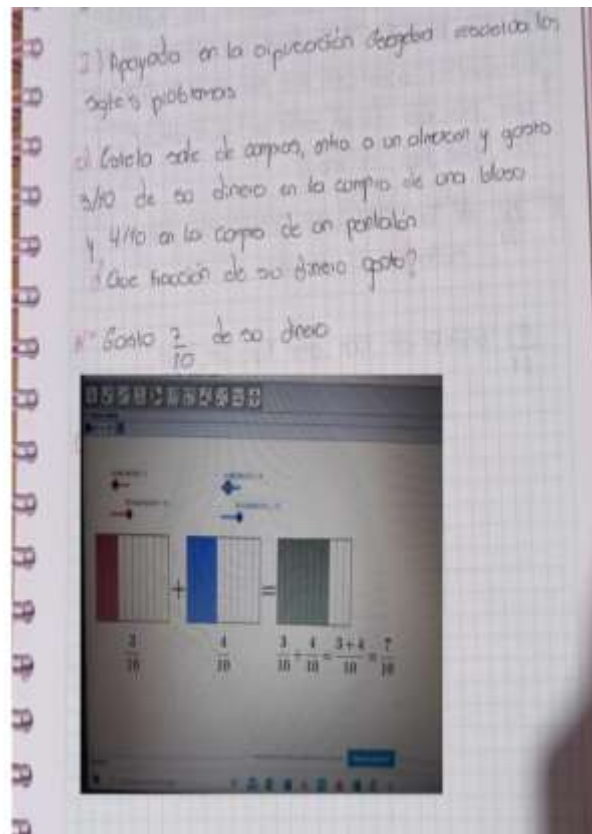 2) Apoyado en la aplicación Geogebra resuelva los
sgtes problemas
a) Estela sale de compras, entra a un almacen y gasta
3/10 de su dinero en la compra de una blusa
y 4/10 en la compra de un pantalón
¿Que fracción de su dinero gasto?
R= Gasto 7/10 de su dinero
+ =
3/10 4/10 3/10 + 4/10 = 3+4/10 = 7/10